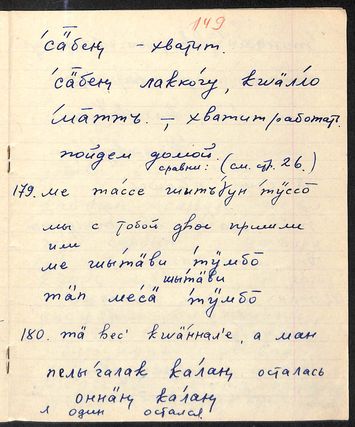 149
́са̄̈бең – хватит.
́са̄̈бең лакко́гу, кwӓллӓо
́ма̄ттъ. –, хватит работат.
пойдем домой.
сравни: (см. стр. 26.)
179. ме та́ссе шытъɣун ́тӱссо̄
мы с тобой двое пришли
или
ме шыта́ви ́тӱмбо̄
шыта́ви
та̄п ме́сӓ ́тӱмбо̄
180. тӓ вес' кwӓннал'е, а ман
пелы́галак ка́лаң осталась
оннӓң ка́лаң
я один остался